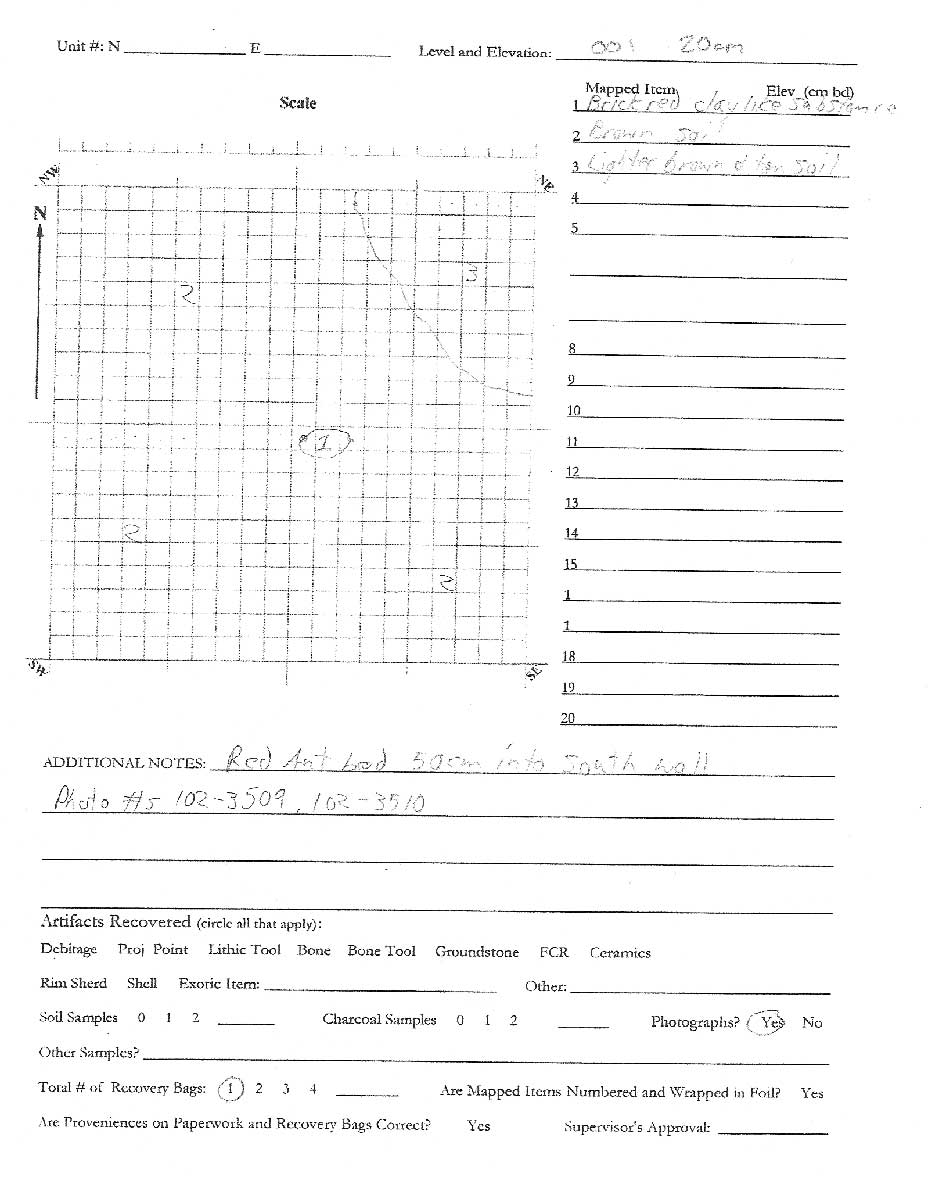 Unit #: N ______ E ______ Level and Elevation: 001 20cm
Scale
Mapped Item Elev (cm bd)
1 Brick red claylike substance
2 Brown soil
3 Lighter Brown & tan soil
4
5
8
9
10
11
12
13
14
15
1
1
18
19
20
NW NE
N
3
2
1
2
2
SW SE
ADDITIONAL NOTES: Red Ant bed 50cm into South wall
Photo #s 102-3509, 102-3510
Artifacts Recovered (circle all that apply):
Debitage Proj Point Lithic Tool Bone Bone Tool Groundstone FCR Ceramics
Rim Sherd Shell Exotic Item: ______ Other: ______
Soil Samples 0 1 2 ______ Charcoal Samples 0 1 2 ______ Photographs? Yes No
Other Samples? ______
Total # of Recovery Bags: 1 2 3 4 ______ Are Mapped Items Numbered and Wrapped in Foil? Yes
Are Proveniences on Paperwork and Recovery Bags Correct? Yes Supervisor's Approval: ______